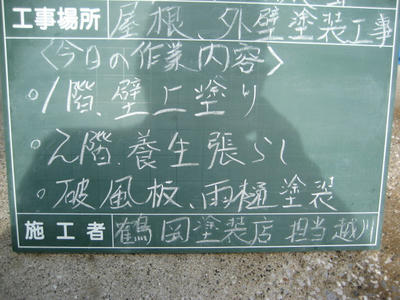 工事場所 屋根、外壁塗装工事
〈今日の作業内容〉
○1階、壁上塗り
○2階、養生張らし
○破風板、雨樋塗装
施工者 鶴岡塗装店 担当越川